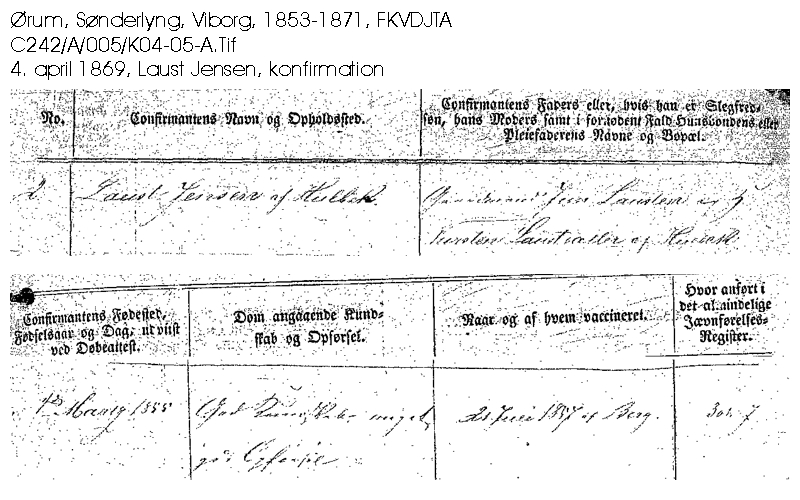 Ørum, Sønderlyng, Viborg, 1853-1871, FKVDJTA
C242/A/005/K04-05-A.Tif
4. april 1869, Laust Jensen, konfirmation
No.
Confirmantens Navn og Opholdssted.
Confirmantens Faders eller, hvis han er Slegfred-
søn, hans Moders samt i forekodent Fald Huusbondens eller
Pleiefaderens Navne og Bopæl.
2
Laust Jensen af Hulbek
Gaardmand Jens Laustsen og
af
Confirmantens Fødested,
Fødselsaar og Dag, udviist
ved Døbeattest.
Dom angaaende Kund-
skab og Opførsel.
Naar og af hvem vaccineret.
Hvor anført i
det almindelige
Jævnførelses-
Register.
1855
God Kundskab meget
god Opførsel
21 Juni 1857 af Berg.
7